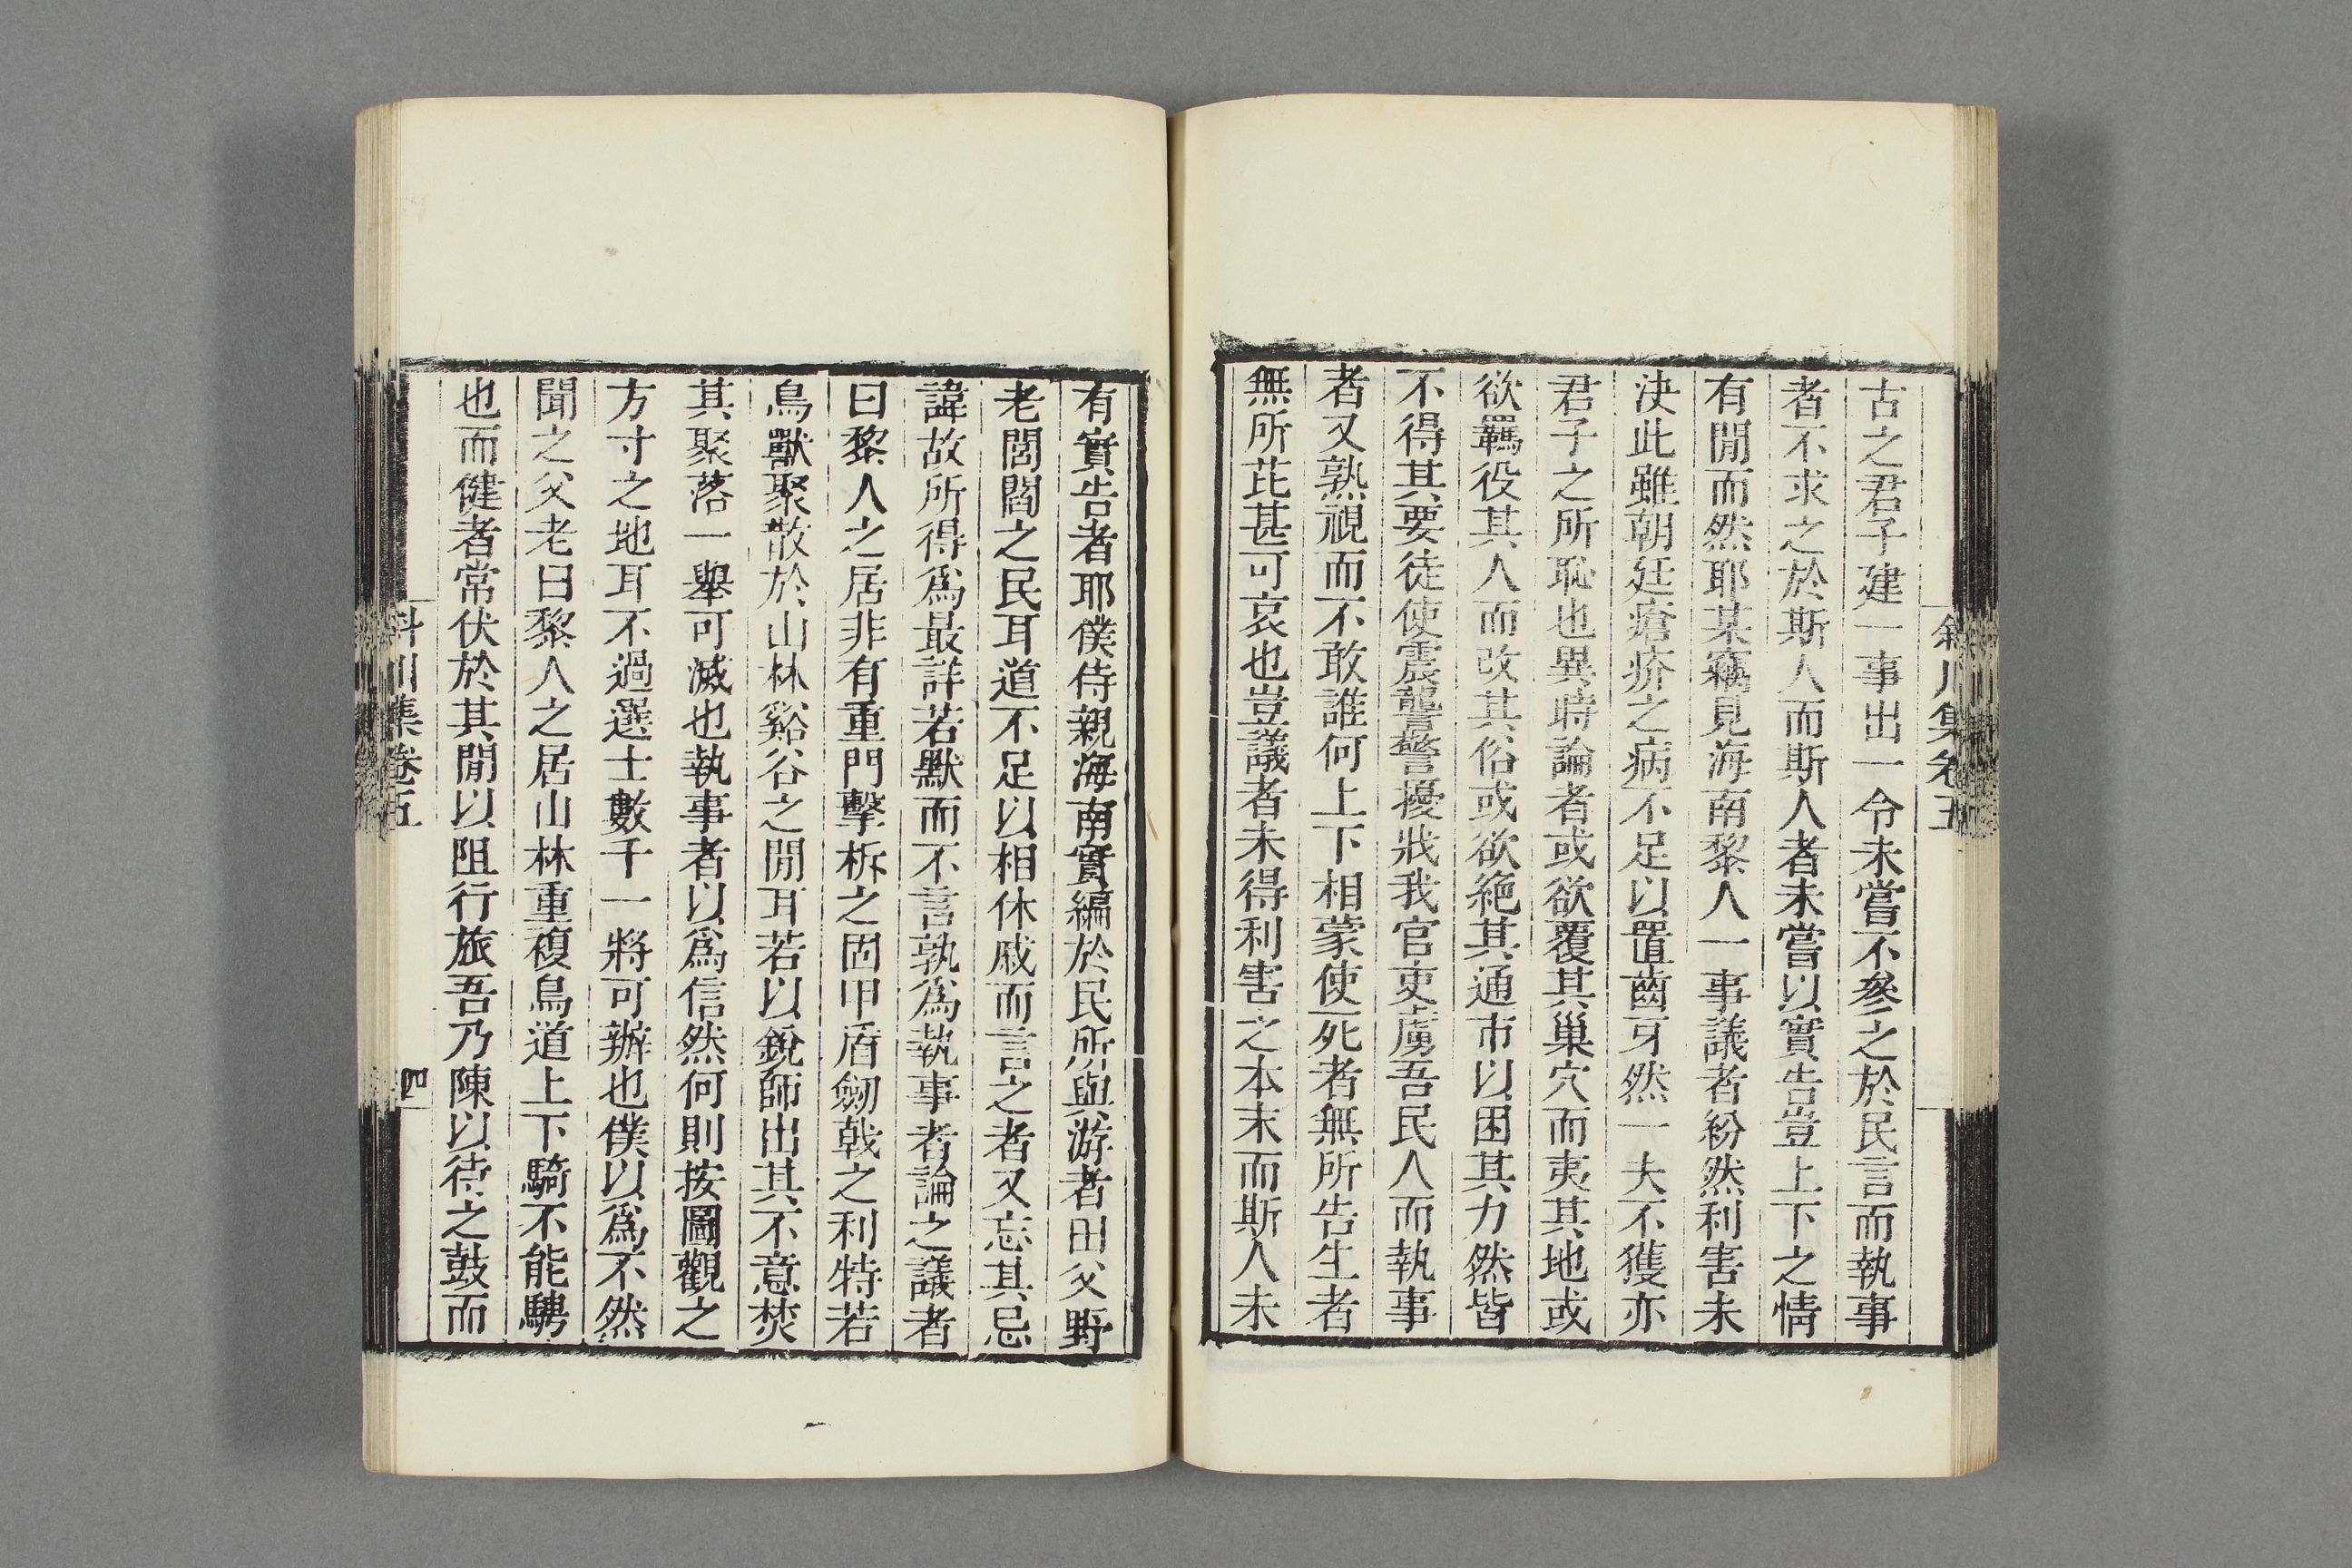 古之君子建一事出一令未嘗不參之於民言而執事
者不求之於斯人而斯人者未嘗以實告豈上下之情
有閒而然耶某竊見海南黎人一事議者紛然利害未
決此雖朝廷瘡疥之病不足以置齒牙然一夫不獲亦
君子之所恥也異時論者或欲覆其巢穴而夷其地或
欲羈役其人而改其俗或欲絶其通市以困其力然皆
不得其要徒使震讋驚擾戕我官吏虜吾民人而執事
者又熟視而不敢誰何上下相蒙使死者無所告生者
無所芘甚可哀也豈議者未得利害之本末而斯人未
有實告者耶僕侍親海南實編於民所與游者田父野
老閭閻之民耳道不足以相休戚而言之者又忘其忌
諱故所得爲最詳若默而不言孰爲執事者論之議者
曰黎人之居非有重門擊柝之固甲盾劒戟之利特若
鳥獸聚散於山林谿谷之閒耳若以銳師出其不意焚
其聚落一舉可滅也執事者以爲信然何則按圖觀之
方寸之地耳不過選士數千一將可辦也僕以爲不然
聞之父老曰黎人之居山林重複鳥道上下騎不能騁
也而健者常伏於其閒以阻行旅吾乃陳以待之鼓而
斜川集卷五
四